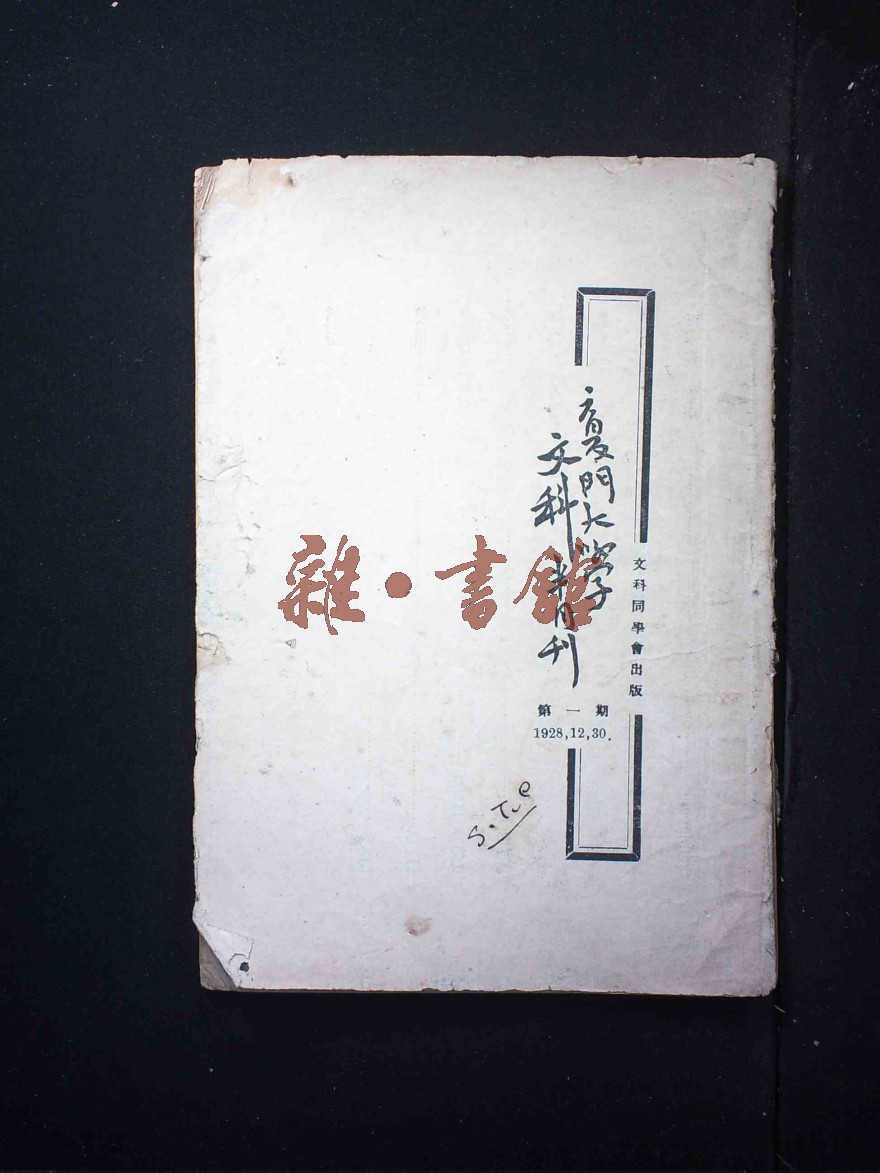 文科同學會出版
廈門大學
文科半月刊
第一期
1928,12,30.
S.T.
雜·書館